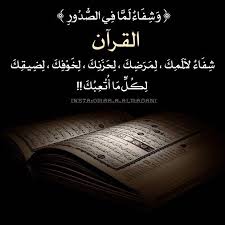 ﴿ وَشِفَاءٌ لِّمَا فِي الصُّدُورِ ﴾
القرآن
شِفَاءٌ لِأَلَمِكَ ، لِمَرَضِكَ ، لِحُزنِكَ ، لِخَوْفِكَ ، لِضِيقِكَ
لِكُلِّ مَا أَتْعَبَكَ !!
INSTA:OMAR.A.ALMADANI